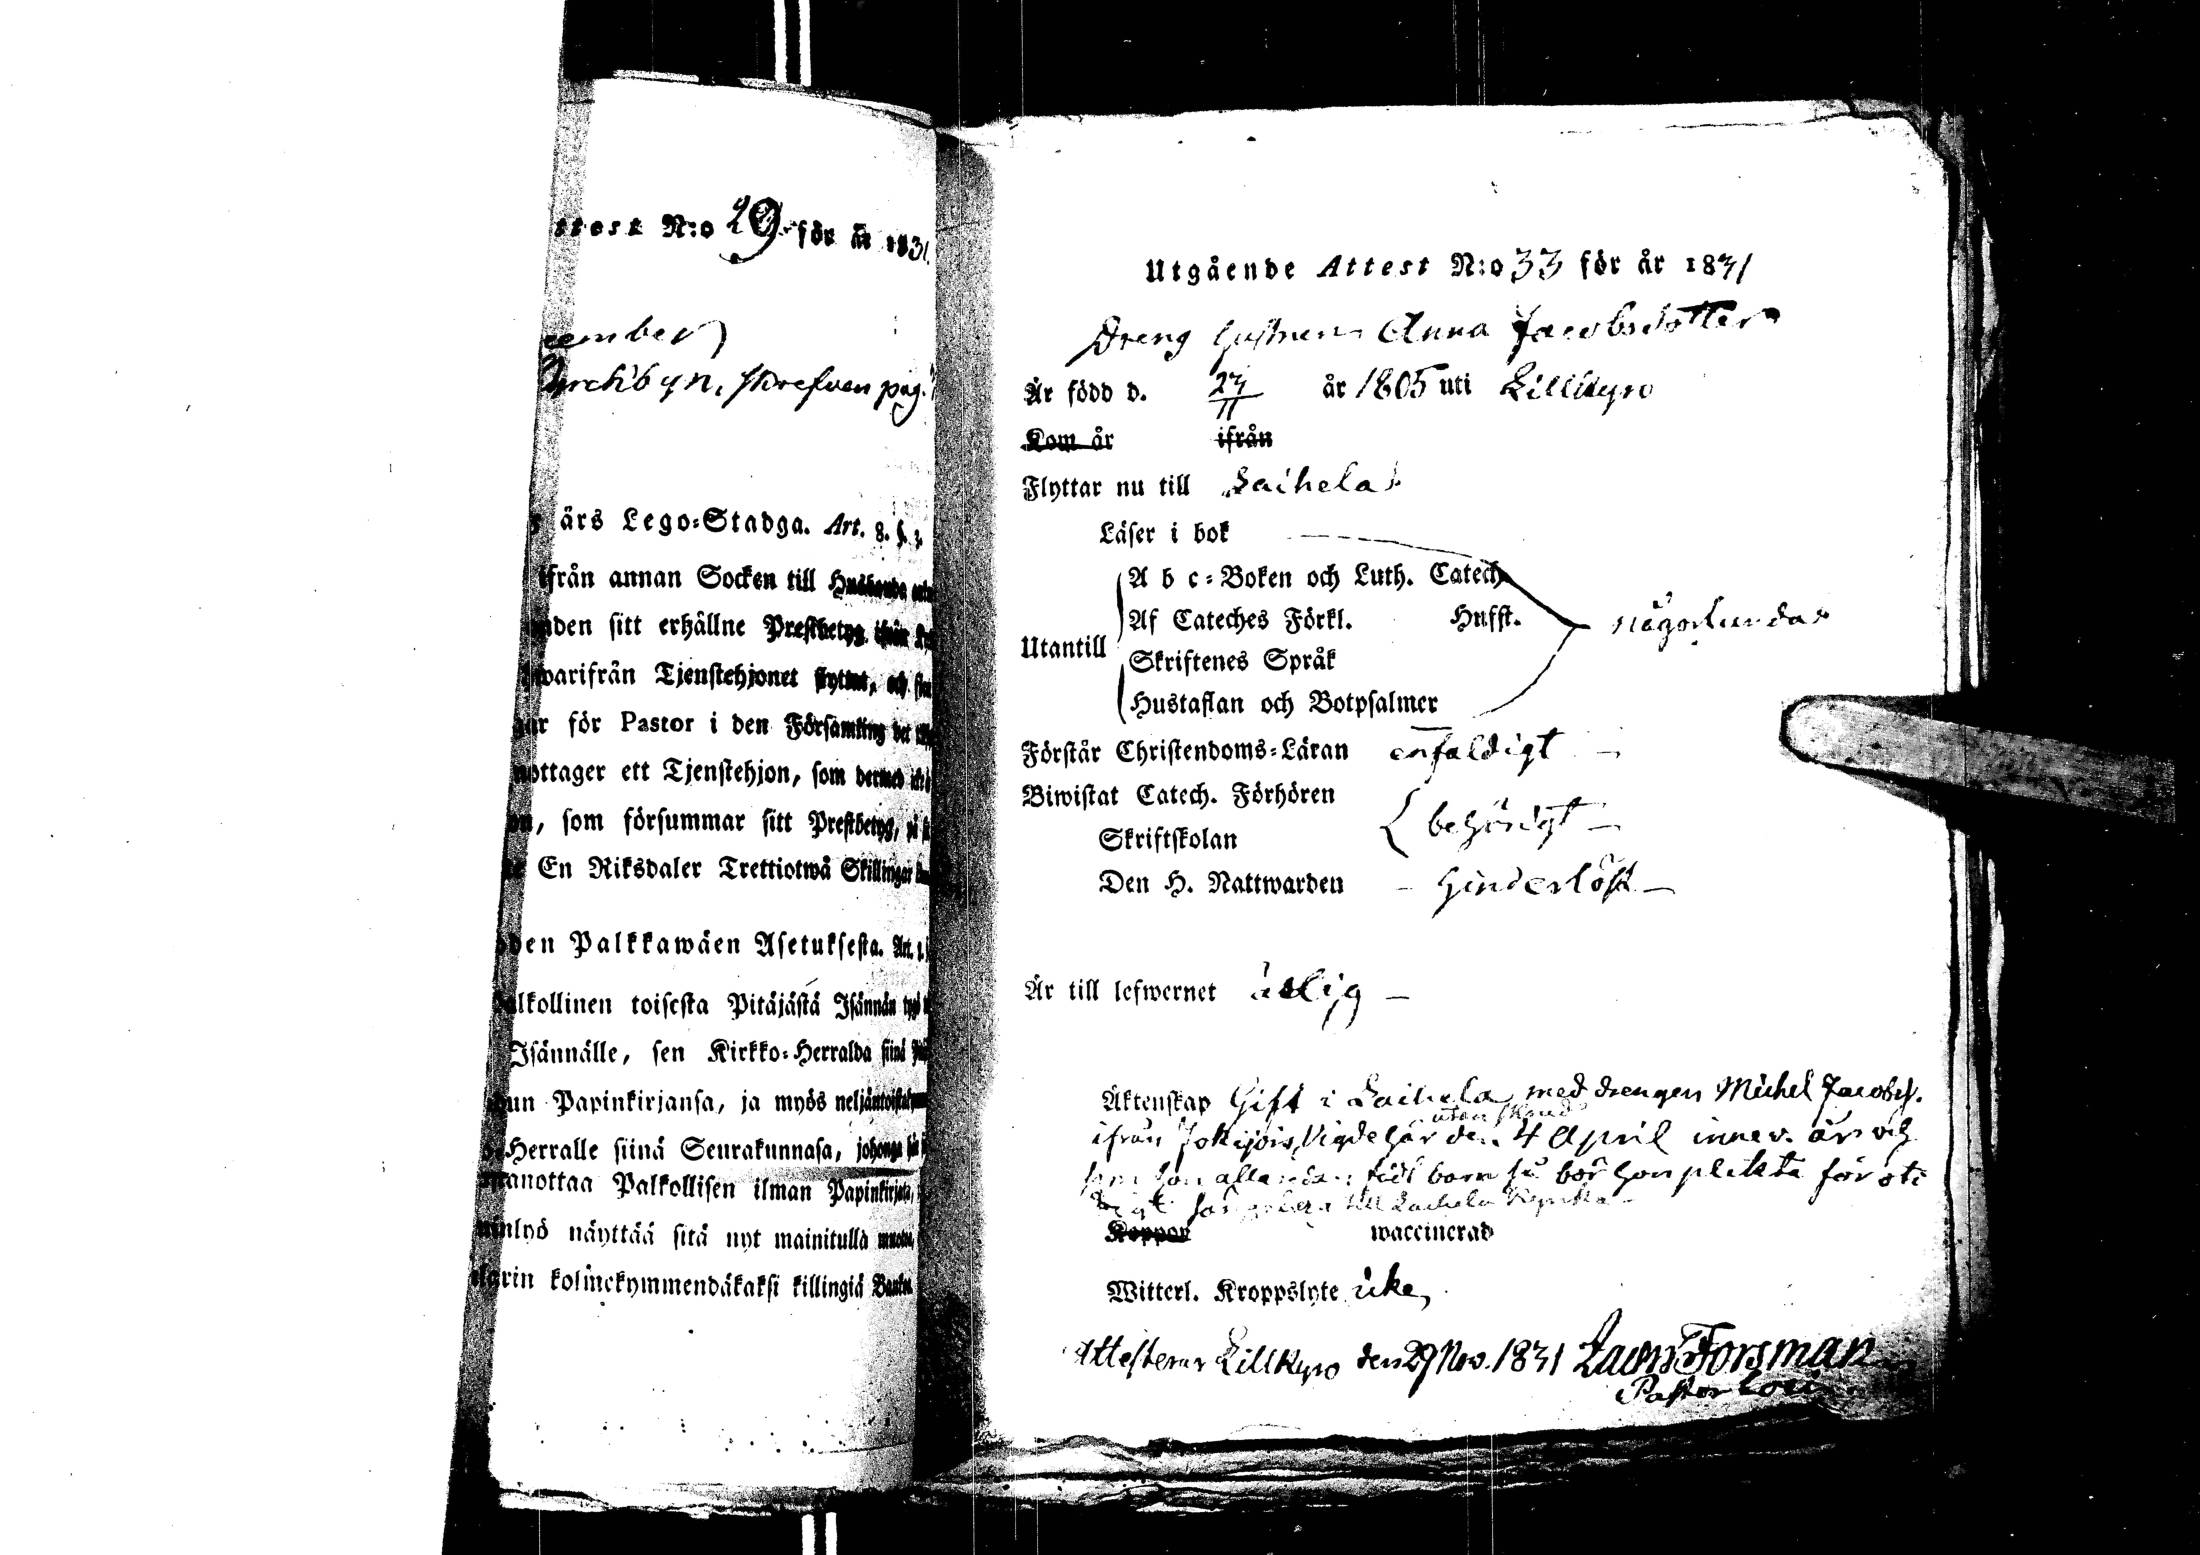 ttest N:o 29 för år 1831.
cember
Kyrckbyn, skrefven pag.
års Lego-Stadga. Art. 8. §. 3.
ifrån annan Socken till Husbonde
nden sitt erhållne Prestbetyg, ifrån
warifrån Tjenstehjonet flyttat, och
gar för Pastor i den Församling det
mottager ett Tjenstehjon, som dermed icke
on, som försummar sitt Prestbetyg, på
En Riksdaler Trettiotwå Skillingar
den Palkkawäen Asetuksesta. Art. 8.
alkollinen toisesta Pitäjästä Isännän tygö
Isännälle, sen Kirkko-Herralda siinä
hun Papinkirjansa, ja myös neljäntoista
Herralle siinä Seurakunnasa, johonga
manottaa Palkollisen ilman Papinkirjata,
minlyö näyttää sitä nyt mainitulla
larin kolmekymmendäkaksi killingiä Banko
Utgående Attest N:o 33 för år 1831
Dreng hustrun Anna Jacobsdotter
Är född d. 27/11 år 1805 uti Lillkyro
Kom år ifrån
Flyttar nu till Laihela
Läser i bok
A b c-Boken och Luth. Catech.
Af Cateches Förkl. Husst. någorlunda
Utantill
Skriftenes Språk
Hustaflan och Botpsalmer
Förstår Christendoms-Läran enfaldigt —
Biwistat Catech. Förhören
behörigt —
Skriftskolan
Den H. Nattwarden – hinderlöst —
Är till lefwernet ärlig —
Äktenskap Gift i Laihela med drengen Michel Jacobss.
utan skrud
ifrån Jokijois, Vigde här den 4 April innev. år och
som hon allaredan födt barn så bör hon plikta för
till Laihela Kyrka
Koppor waccinerad
Witterl. Kroppslyte icke,
Attesterar Lillkyro den 29 Nov. 1831 Zachr. Forsman
Pastor Loci